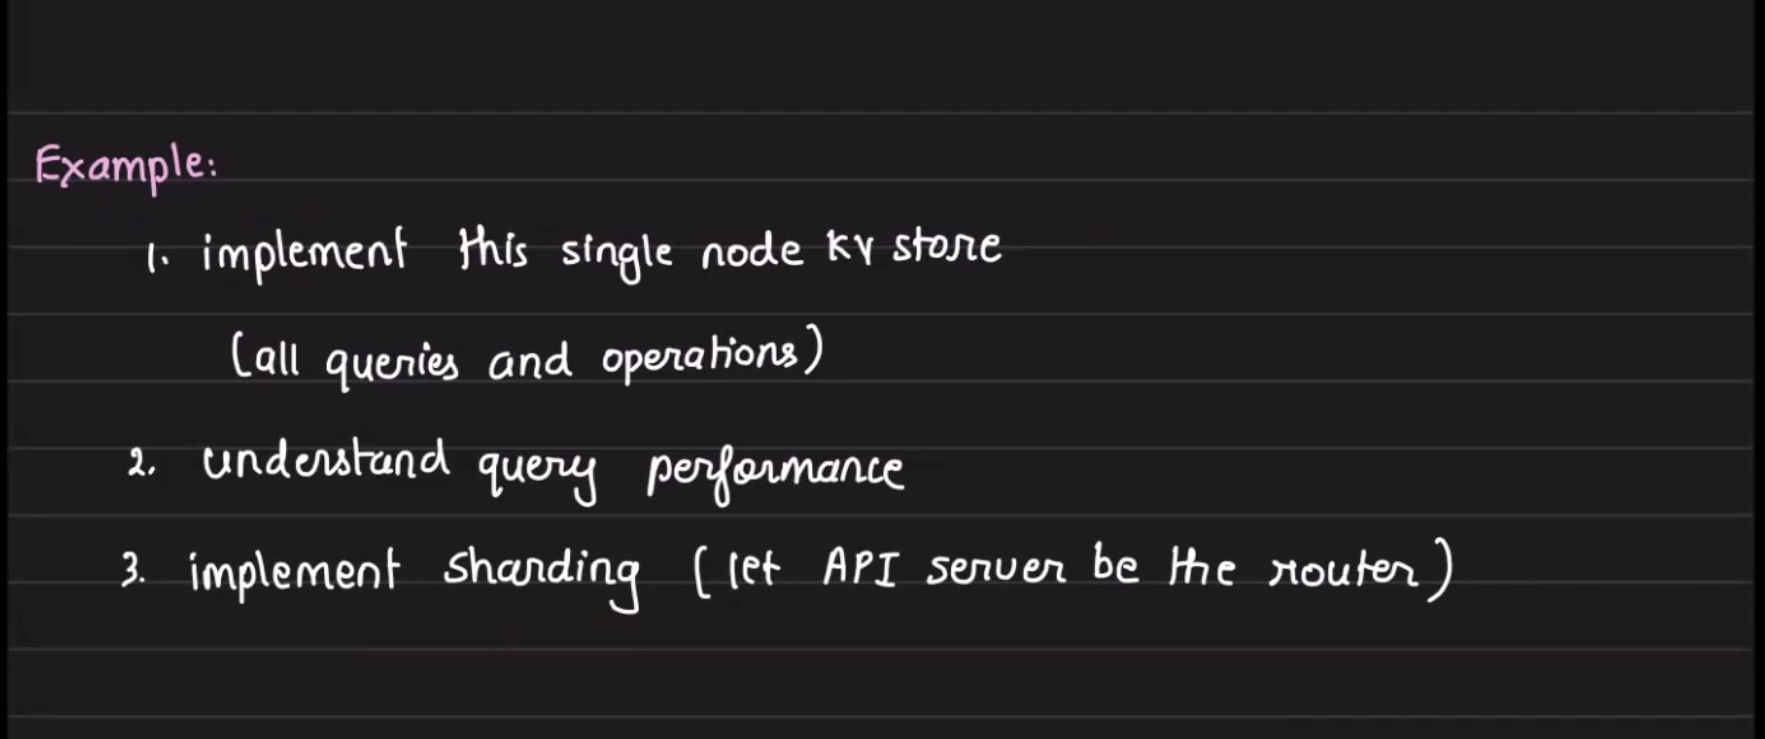 Example:
1. implement this single node KV store
(all queries and operations)
2. understand query performance
3. implement sharding (let API server be the router)